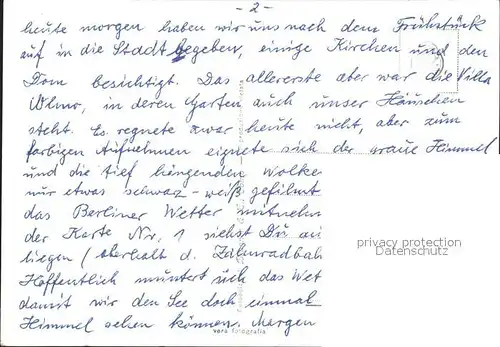 - 2 -
heute morgen haben wir uns nach dem Frühstück
auf in die Stadt begeben, einige Kirchen und den
Dom besichtigt. Das allererste aber war die Villa
in deren Garten auch unser Häuschen
steht. Es regnete zwar heute nicht, aber zum
farbigen Aufnehmen eignete sich der graue Himmel
und die tief hängenden Wolke
nur etwas schwarz-weiß gefilmt
das Berliner Wetter mitnehm
der Karte Nr. 1 siehst Du
liegen (oberhalb d. Zahnradbah
Hoffentlich muntert sich das Wet
damit wir den See doch einmal
Himmel sehen können. Morgen
privacy protection
Datenschutz
vera fotografia